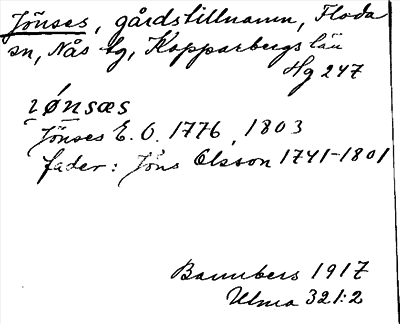 Jönses, gårdstillnamn, Floda
sn, Nås tg, Kopparbergs län
Hg 247
ιǿnsæs
Jönses E. O. 1776, 1803
fader: Jöns Olsson 1741-1801
Bannbers 1917
Ulma 321:2